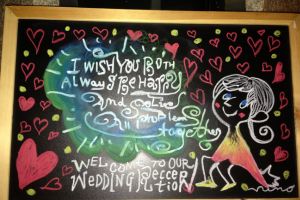 I WISH YOU BOTH
Always Be Happy
And Solve
All problems
together
WELCOME TO OUR
WEDDING RECCEP
UTION
nino